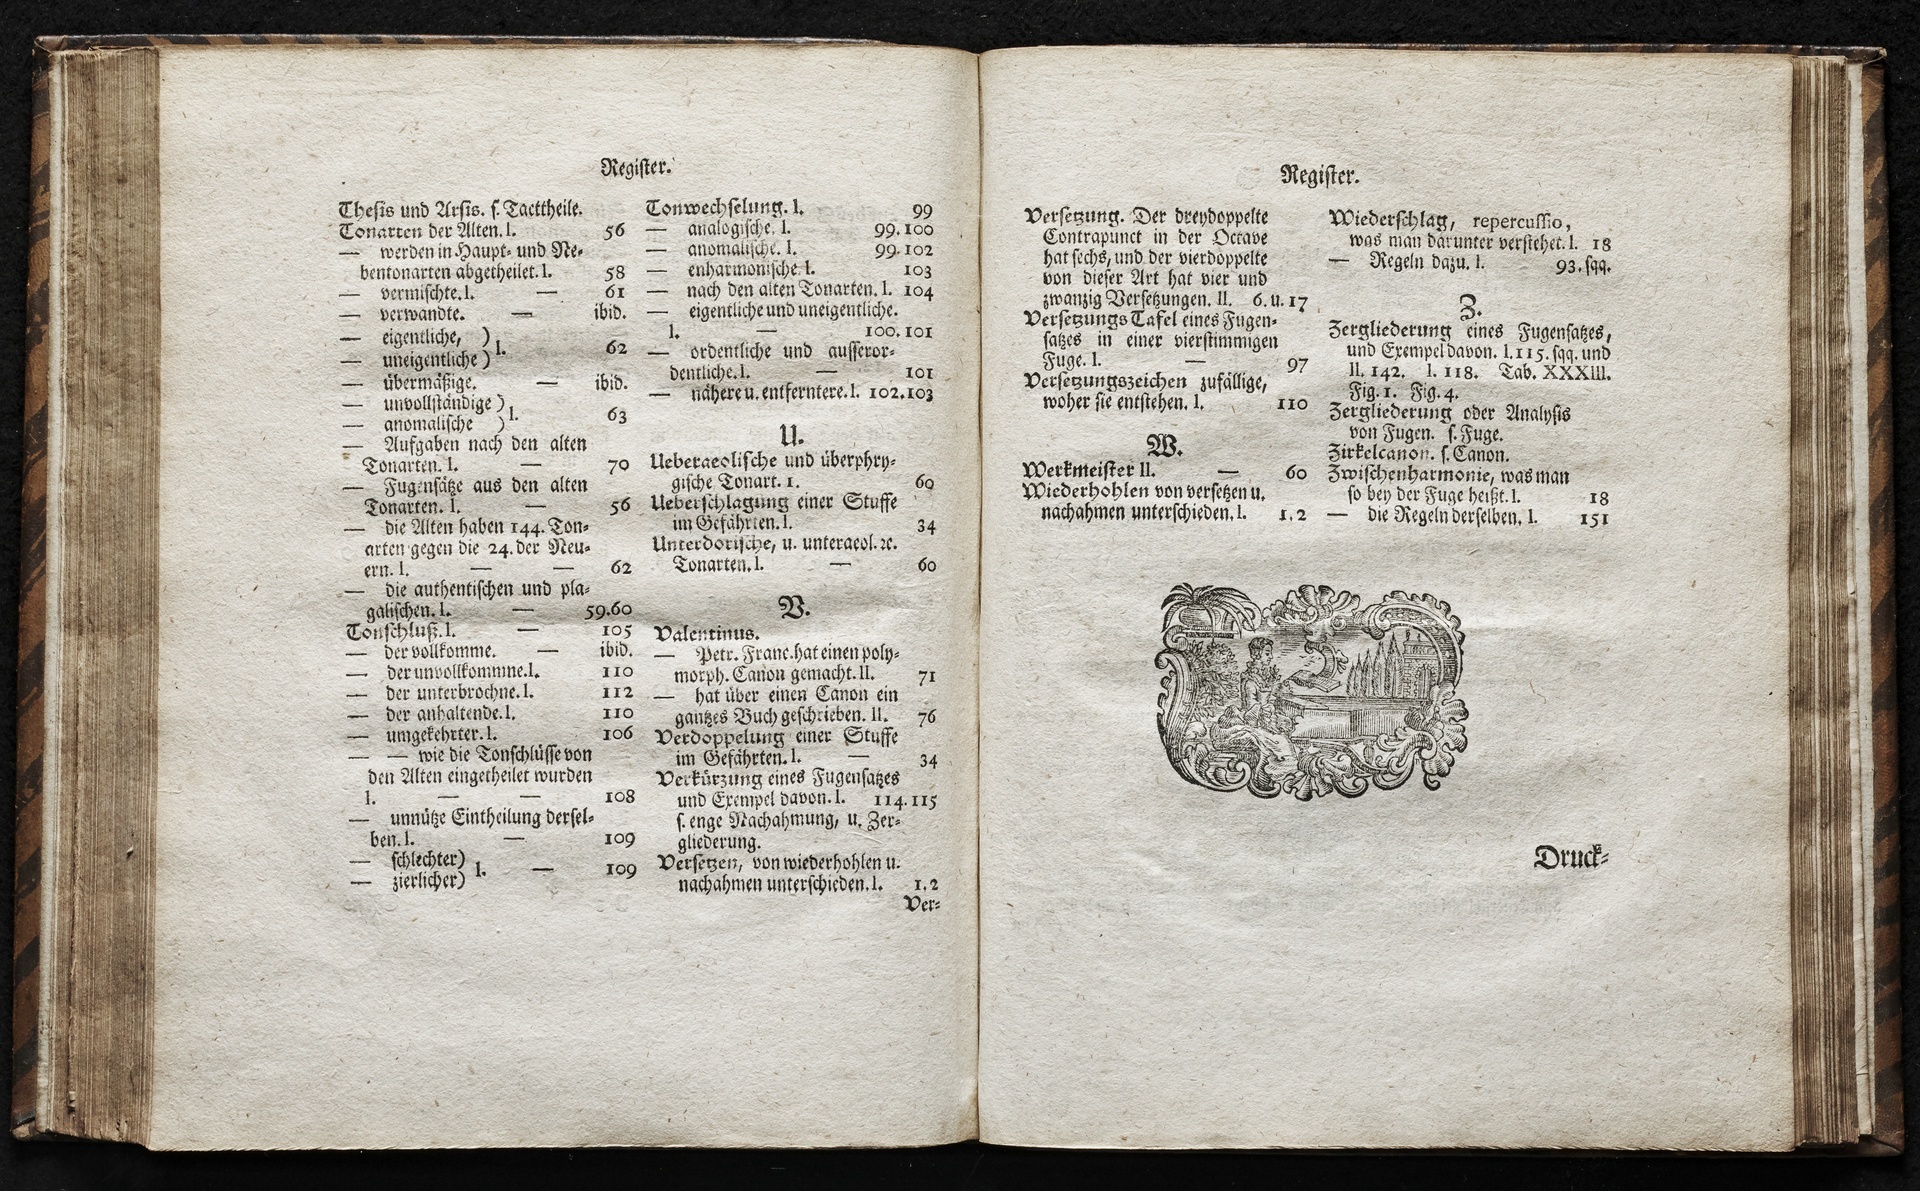 Register.
Thesis und Arsis. s. Tacttheile.
Tonarten der Alten. I. 56
— werden in Haupt- und Ne-
bentonarten abgetheilet. I. 58
— vermischte. I. — 61
— verwandte. — ibid.
— eigentliche, )
— uneigentliche ) I. 62
— übermäßige. — ibid.
— unvollständige )
— anomalische ) I. 63
— Aufgaben nach den alten
Tonarten. I. — 70
— Fugensätze aus den alten
Tonarten. I. — 56
— die Alten haben 144. Ton-
arten gegen die 24. der Neu-
ern. I. — — 62
— die authentischen und pla-
galischen. I. — 59.60
Tonschluß. I. — 105
— der vollkomme. — ibid.
— der unvollkommne. I. 110
— der unterbrochne. I. 112
— der anhaltende. I. 110
— umgekehrter. I. 106
— — wie die Tonschlüsse von
den Alten eingetheilet wurden
I. — — 108
— unnütze Eintheilung dersel-
ben. I. — 109
— schlechter)
— zierlicher) I. — 109
Tonwechselung. I. 99
— analogische. I. 99.100
— anomalische. I. 99.102
— enharmonische. I. 103
— nach den alten Tonarten. I. 104
— eigentliche und uneigentliche.
I. — 100.101
— ordentliche und ausseror-
dentliche. I. — 101
— nähere u. entferntere. I. 102.103
U.
Ueberaeolische und überphry-
gische Tonart. I. 60
Ueberschlagung einer Stuffe
im Gefährten. I. 34
Unterdorische, u. unteraeol. ꝛc.
Tonarten. I. — 60
V.
Valentinus.
— Petr. Franc. hat einen poly-
morph. Canon gemacht. II. 71
— hat über einen Canon ein
gantzes Buch geschrieben. II. 76
Verdoppelung einer Stuffe
im Gefährten. I. — 34
Verkürzung eines Fugensatzes
und Exempel davon. I. 114.115
s. enge Nachahmung, u. Zer-
gliederung.
Versetzen, von wiederhohlen u.
nachahmen unterschieden. I. 1.2
Ver-
Register.
Versetzung. Der dreydoppelte
Contrapunct in der Octave
hat sechs, und der vierdoppelte
von dieser Art hat vier und
zwanzig Versetzungen. II. 6. u. 17
Versetzungs Tafel eines Fugen-
satzes in einer vierstimmigen
Fuge. I. — 97
Versetzungszeichen zufällige,
woher sie entstehen. I. 110
W.
Werkmeister II. — 60
Wiederhohlen von versetzen u.
nachahmen unterschieden. I. 1.2
Wiederschlag, repercussio,
was man darunter verstehet. I. 18
— Regeln dazu. I. 93. sqq.
Z.
Zergliederung eines Fugensatzes,
und Exempel davon. I. 115. sqq. und
II. 142. I. 118. Tab. XXXIII.
Fig. 1. Fig. 4.
Zergliederung oder Analysis
von Fugen. s. Fuge.
Zirkelcanon. s. Canon.
Zwischenharmonie, was man
so bey der Fuge heißt. I. 18
— die Regeln derselben. I. 151
Druck-